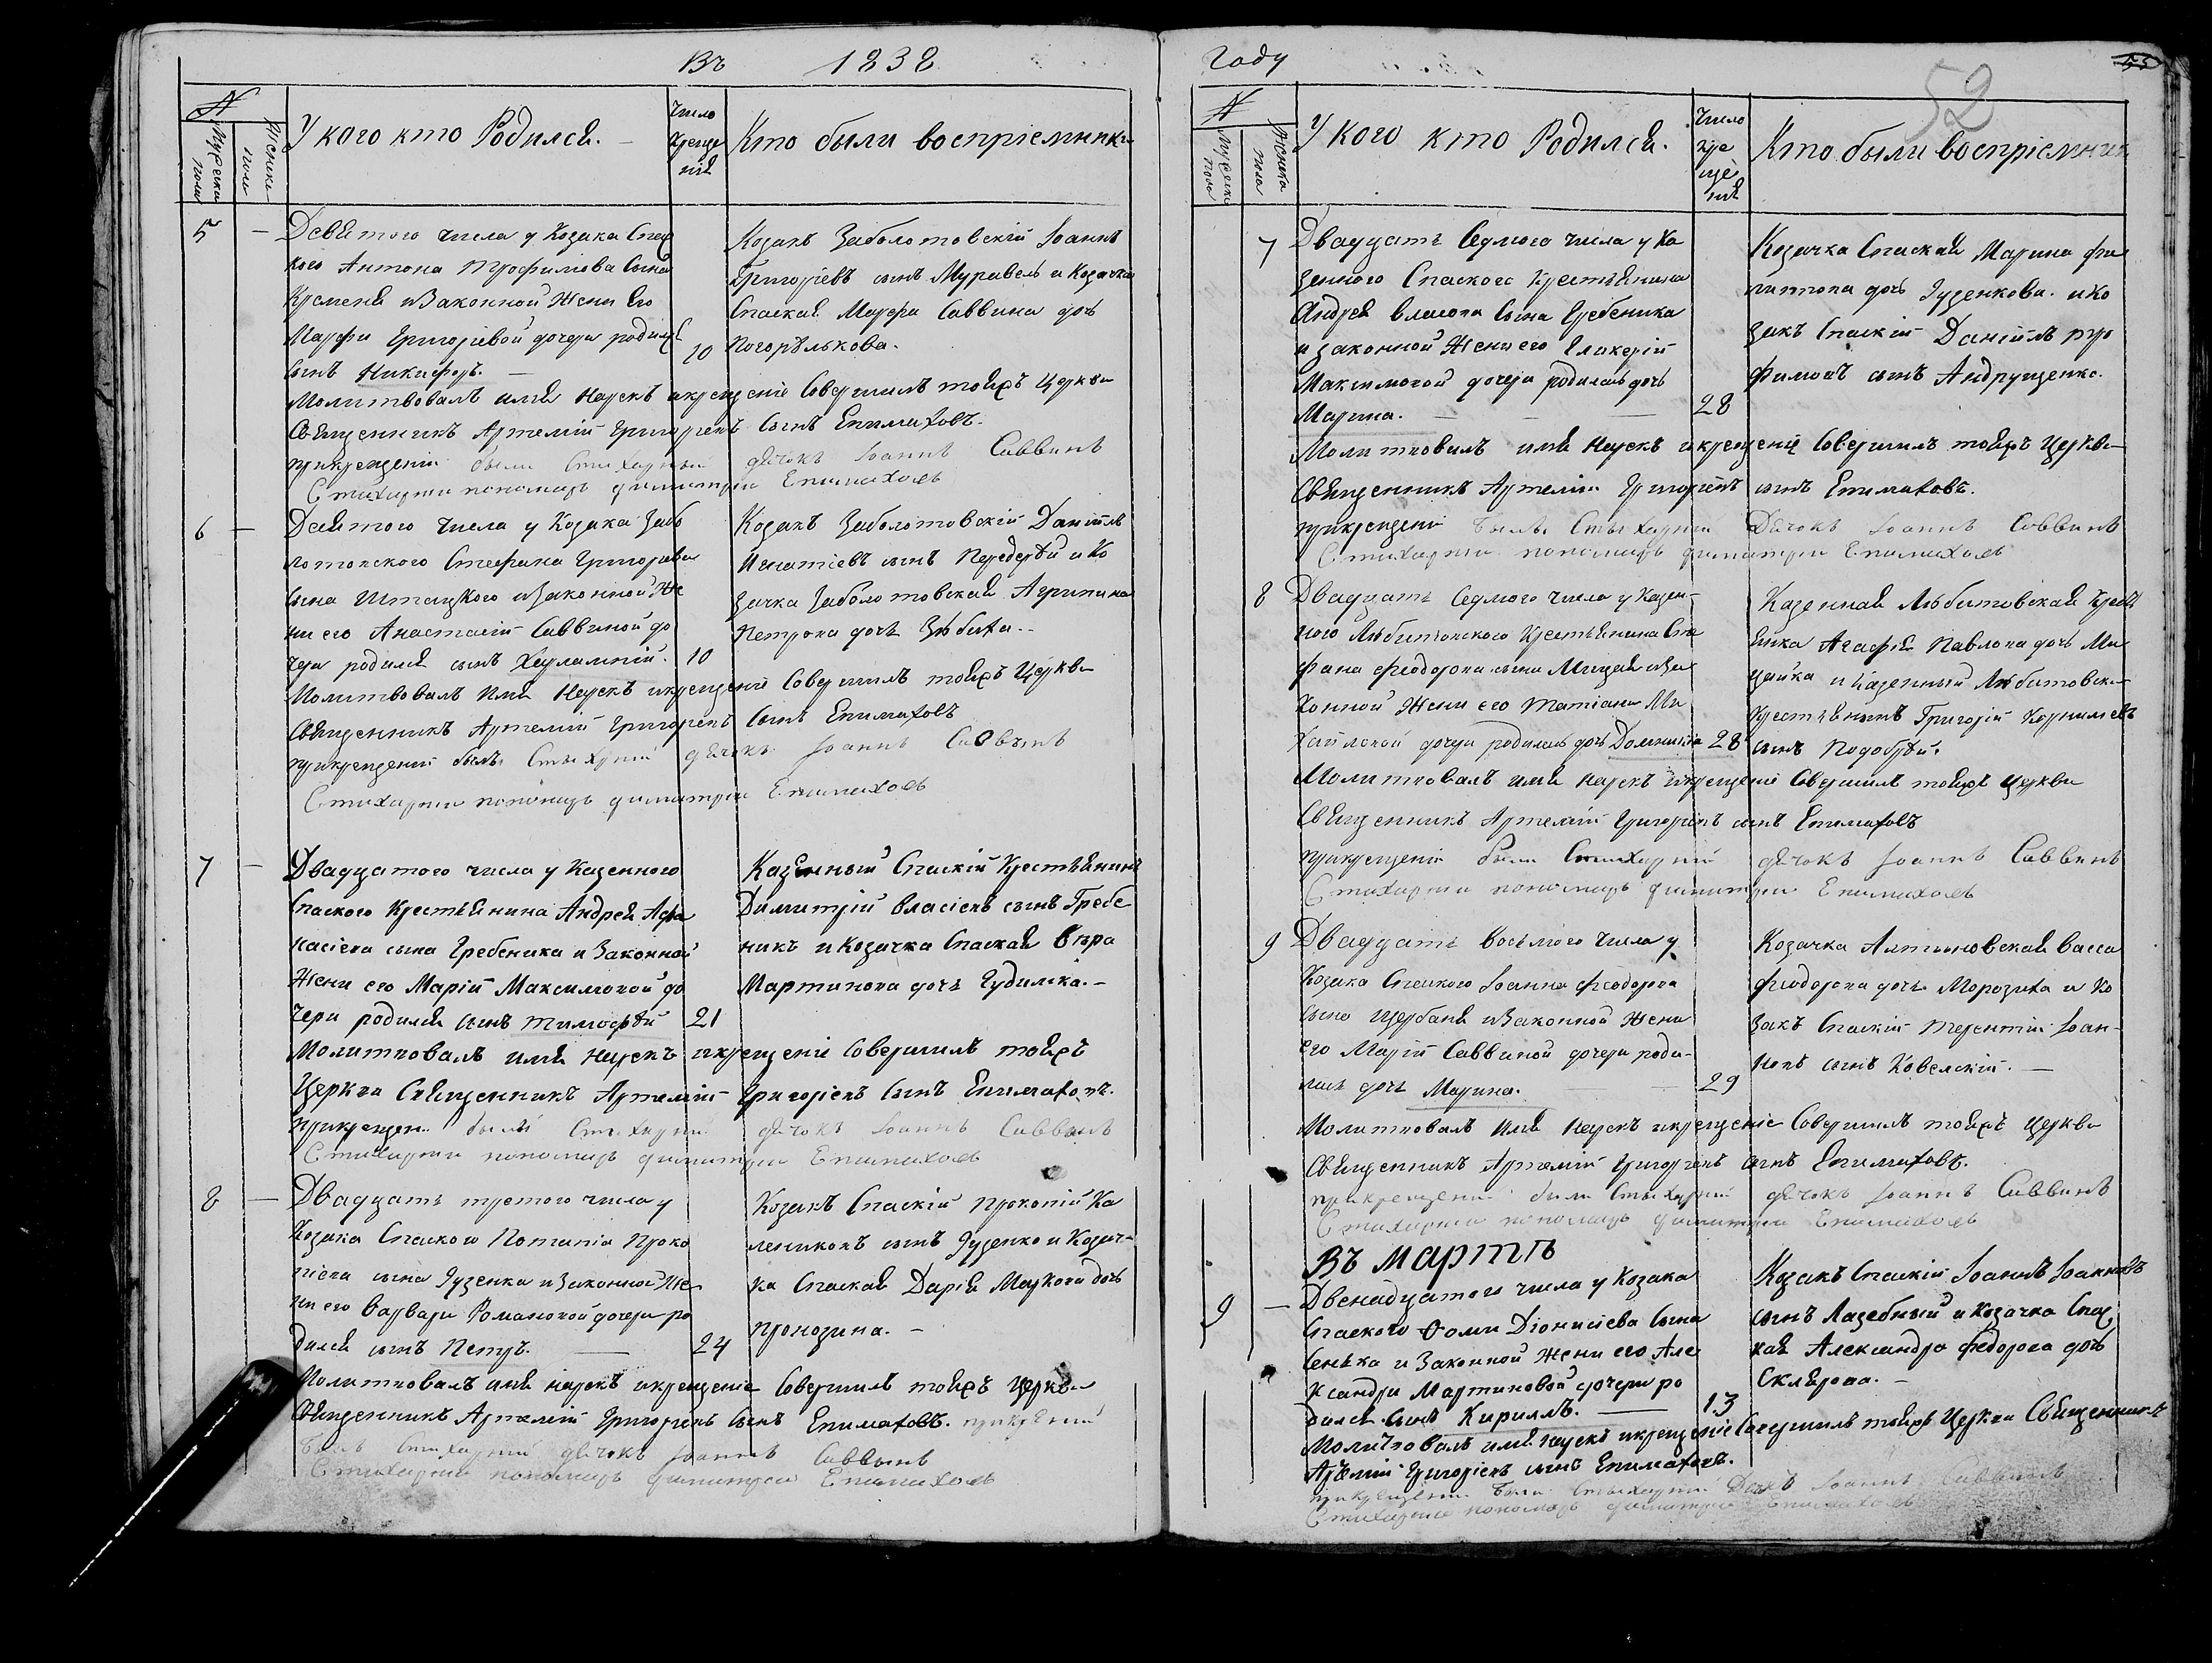 Въ 1838
№
Мужеска пола
Женска пола
У кого кто Родился.
Число Креще нія
Кто были воспріемники
5 — Девятого числа у Козака Спас
кого Антона Трофимова Сына
Кременя и Законной Жени Его
Марфи Григоріевой дочери родился
Сынъ Никифоръ. — 10
Козакъ Заболотовскій Іоаннъ
Григоріевъ сынъ Муравель и Козачка
Спаская Марфа Саввина дочь
Погорѣлькова.
Молитвовалъ имя Нарекъ и крещеніе Совершилъ тояжъ Церкви
Священникъ Артемій Григоріевъ Сынъ Епимаховъ.
при крещеніи были Стихарный дячокъ Іоаннъ Саввинъ
Стихарни пономарь Димитрій Епимаховъ
6 — Десятого числа у Козака Забо
лотовского Стефана Григорева
Сына Штацкого и Законной Же
ни его Анастасіи Саввиной до
чери родился сынъ Харлампій. 10
Козакъ Заболотовскій Даніилъ
Игнатіевъ сынъ Передерѣй и Ко
зачка Заболотовская Агрипина
Петрова дочь Зѣбиха.
Молитвовалъ Имя Нарекъ и крещеніе Совершилъ тояжъ Церкви
Священникъ Артемій Григоріевъ Сынъ Епимаховъ
при крещеніи былъ Стыхарній дячокъ Іоаннъ Саввынъ
Стихарни пономарь Димитрій Епимаховъ
7 — Двадцатого числа у Казенного
Спаского Крестьянина Андрея Афа
насіева сына Гребеника и Законной
Жени его Маріи Максимовой до
чери родился сынъ Тимофѣй 21
Казенный Спаскій Крестьянинъ
Димитрій Власіевъ сынъ Гребе
никъ и Козачка Спаская Вѣра
Мартинова дочь Гудимка. —
Молитвовалъ имя нарекъ и крещеніе Совершилъ тояжъ
Церкви Священникъ Артемій Григоріевъ Сынъ Епимаховъ.
при крещен. былы Стихарни дячокъ Іоаннъ Саввинъ
Стихарни пономарь Димитрій Епимаховъ
8 — Двадцать третого числа у
Козака Спаского Потапія Проко
піева сына Гузенка и Законной Же
ни его Варвари Романовой дочери ро
дился сынъ Петръ. — 24
Козакъ Спаскій Прокопій Ка
лениковъ сынъ Гузенко и Козач-
ка Спаская Дарія Маркова дочь
Пронозина. —
Молитвовалъ имя нарекъ и крещеніе Совершилъ тояжъ Церкви
Священникъ Артемій Григоріевъ Сынъ Епимаховъ. при крещеній
былъ Стихарний дячокъ Іоаннъ Саввынъ
Стихарни пономарь Димитрій Епимаховъ
Году
52
№
Мужеска пола
Женска пола
У кого кто Родился.
Число кре ще нія
Кто были воспріемник
7 Двадцать Седмого числа у Ка
зенного Спаского Крестьянина
Андрея Власова Сына Гребеника
и законной Жени его Гликеріи
Максимовой дочери родилась дочь
Марина. — 28
Козачка Спаская Марина Фи
липпова дочь Гузенкова. и Ко
закъ Спаскій Даніилъ Тро
фимовъ сынъ Андрущенко.
Молитвовалъ имя Нарекъ и крещеніе Совершилъ тояжъ Церкви
Священникъ Артемій Григоріевъ сынъ Епимаховъ.
при крещеніи былъ Стыхарни Дячокъ Іоаннъ Саввинъ
Стихарни пономарь Димитрій Епимаховъ
8 Двадцать Седмого числа у Казен-
ного Любитовского Крестьянина Сте
фана Феодорова сына Мицая и За
конной Жени его Татіани Ми
хайловой дочери родилась дочь Домникія 28
Казенная Любитовская Крест
янка Агафія Павлова дочь Ми
цайка и Казенный Любитовски
Крестьянинъ Григорій Корниліевъ
сынъ Подобрѣй.
Молитвовалъ имя нарекъ и крещеніе Совершилъ тояжъ Церкви
Священникъ Артемій Григоріевъ сынъ Епимаховъ
при крещеніи были Стихарний дячокъ Іоаннъ Саввинъ
Стихарни пономарь Димитрій Епимаховъ
9 Двадцать восьмого числа у
Козака Спаского Іоанна Феодорова
сына Щербаня и Законной Жени
его Маріи Саввиной дочери роди-
лась дочь Марина. — 29
Козачка Алтиновская Васса
Феодорова дочь Морозиха и Ко
закъ Спаскій Терентій Іоан-
новъ сынъ Ковелскій. —
Молитвовалъ Имя Нарекъ и крещеніе Совершилъ тояжъ Церкви
Священникъ Артемій Григоріевъ сынъ Епимаховъ.
при крещении были Стыхарний дячокъ Іоаннъ Саввинъ
Стихарни пономарь Димитрій Епимаховъ
Въ мартѣ
9 — Двенадцатого числа у Козака
Спаского Фоми Діонисіева Сына
Сенька и Законной Жени его Але
ксандри Мартиновой дочери ро
дился Сынъ Кириллъ. — 13
Козакъ Спаскій Іоаннъ Іоанновъ
сынъ Лазебный и Козачка Спас
кая Александра Федорова дочь
Склярова. —
Молитвовалъ имя нарекъ и крещеніе Совершилъ тояжъ Церкви Священникъ
Артемій Григоріевъ сынъ Епимаховъ.
при крещении были Стыхарни Дячокъ Іоаннъ Саввинъ
Стихарни пономарь Димитрій Епимаховъ